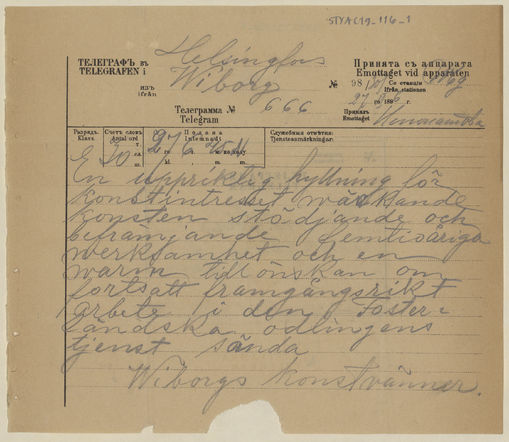 STYAC19_116_1
ТЕЛЕГРАФЪ въ
TELEGRAFEN i
Helsingfors
изъ
ifrån
Wiborg
Принята съ аппарата
Emottaget vid apparaten
№ 98
Со станціи
ifrån stationen
27
18
Телеграмма № 666
Telegram
Принялъ
Emottaget
Разрядъ.
Klass.
Счетъ словъ
Antal ord
30
Подана
Inlemnadt
27
Служебныя отмѣтки:
Tjensteanmärkningar:
En uppriktig hyllning för
konstintresset wäckande
konsten stödjande och
befrämjande femtioåriga
werksamhet och en
warm tillönskan om
fortsatt framgångsrikt
arbete i den foster=
ländska odlingens
tjenst sända
Wiborgs konstvänner.